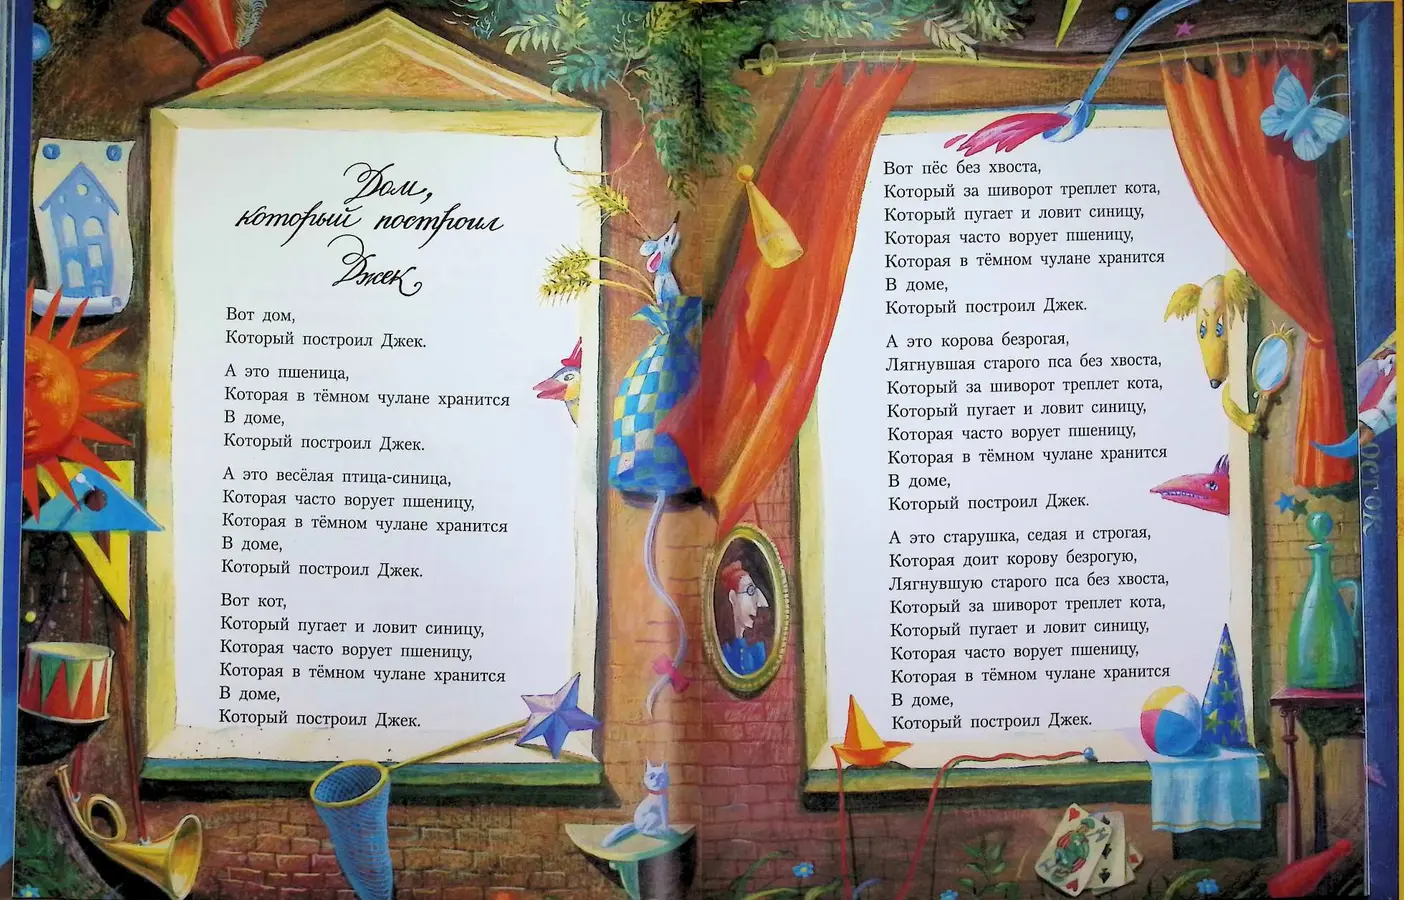 Дом,
который построил
Джек
Вот дом,
Который построил Джек.
А это пшеница,
Которая в тёмном чулане хранится
В доме,
Который построил Джек.
А это весёлая птица-синица,
Которая часто ворует пшеницу,
Которая в тёмном чулане хранится
В доме,
Который построил Джек.
Вот кот,
Который пугает и ловит синицу,
Которая часто ворует пшеницу,
Которая в тёмном чулане хранится
В доме,
Который построил Джек.
Вот пёс без хвоста,
Который за шиворот треплет кота,
Который пугает и ловит синицу,
Которая часто ворует пшеницу,
Которая в тёмном чулане хранится
В доме,
Который построил Джек.
А это корова безрогая,
Лягнувшая старого пса без хвоста,
Который за шиворот треплет кота,
Который пугает и ловит синицу,
Которая часто ворует пшеницу,
Которая в тёмном чулане хранится
В доме,
Который построил Джек.
А это старушка, седая и строгая,
Которая доит корову безрогую,
Лягнувшую старого пса без хвоста,
Который за шиворот треплет кота,
Который пугает и ловит синицу,
Которая часто ворует пшеницу,
Которая в тёмном чулане хранится
В доме,
Который построил Джек.